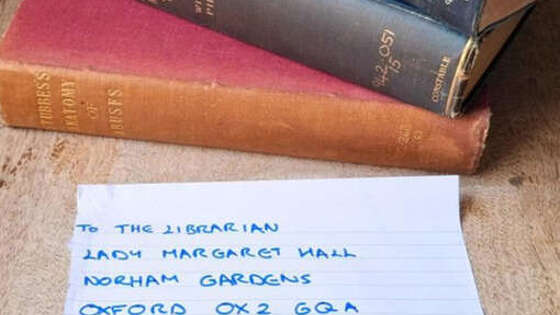 WI
PI
942.051
15
CONSTABLE
STUBBES'S
ANATOMY
OF
ABUSES
TO THE LIBRARIAN
LADY MARGARET HALL
NORHAM GARDENS
OXFORD OX2 6QA